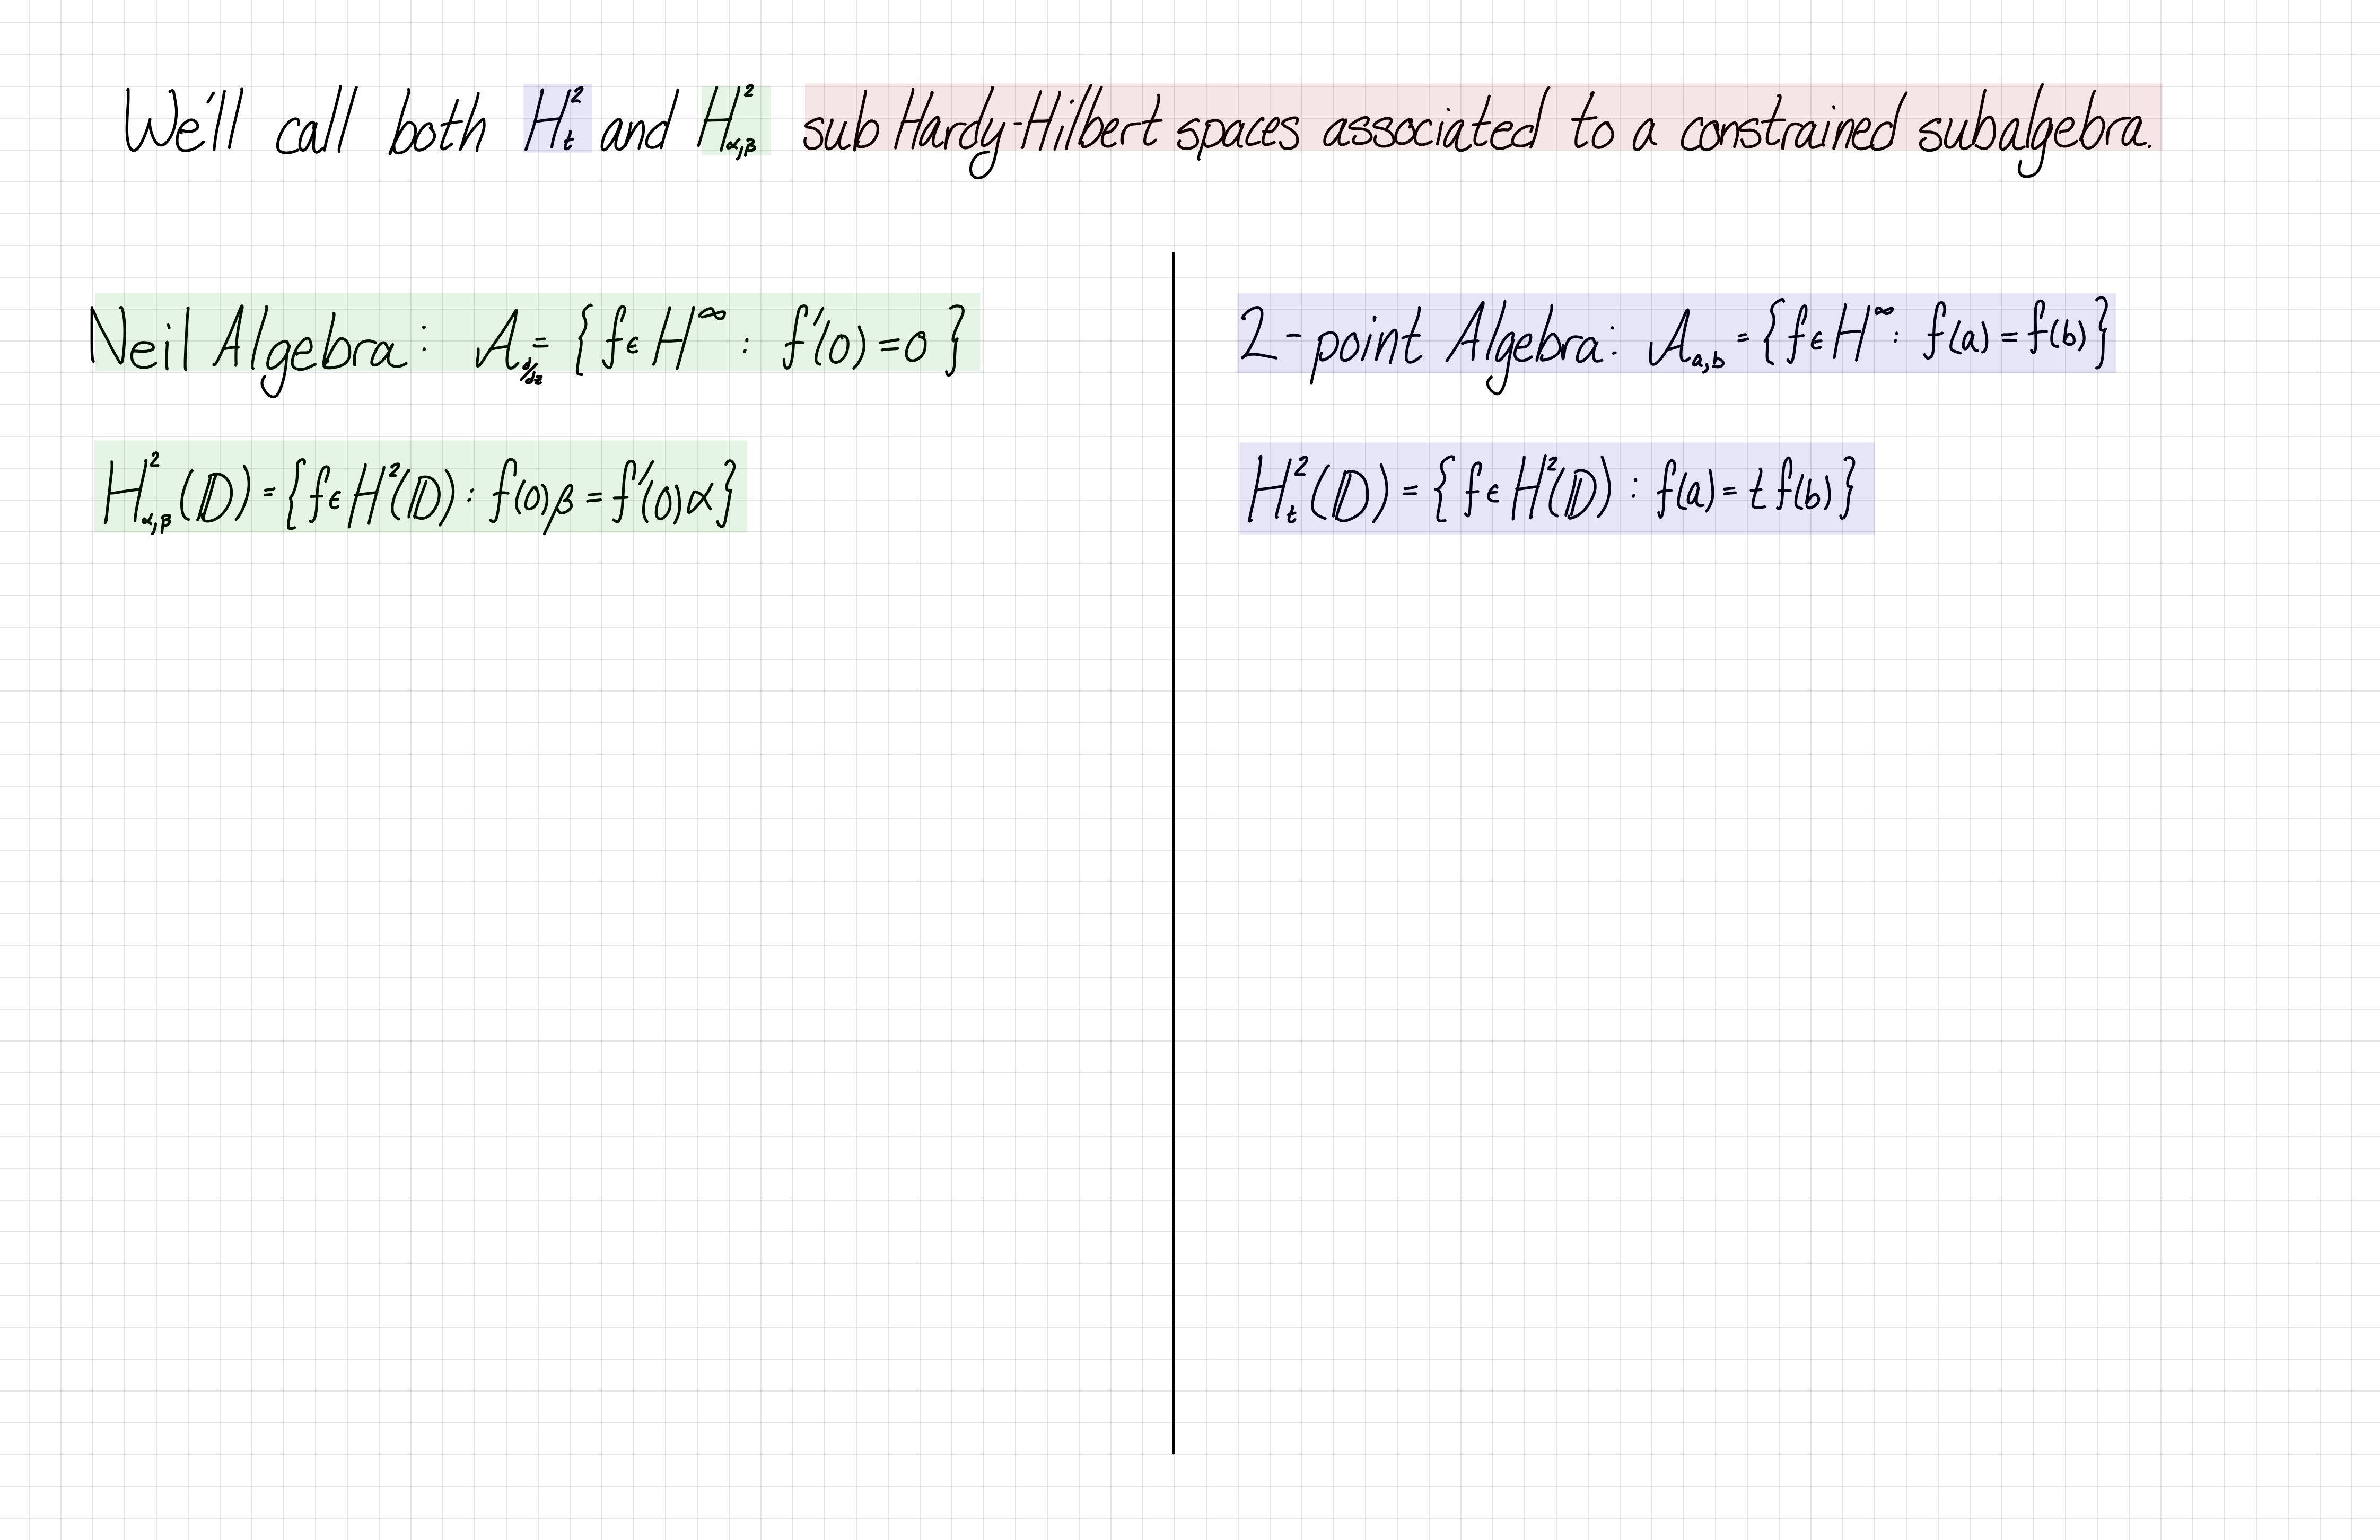 We'll call both H²_t and H²_{α,β} sub Hardy-Hilbert spaces associated to a constrained subalgebra.
Neil Algebra: 𝒜_{d/dz} = {f ∈ H^∞ : f'(0) = 0}
H²_{α,β}(𝔻) = {f ∈ H²(𝔻) : f(0)β = f'(0)α}
2-point Algebra: 𝒜_{a,b} = {f ∈ H^∞ : f(a) = f(b)}
H²_t(𝔻) = {f ∈ H²(𝔻) : f(a) = t f(b)}